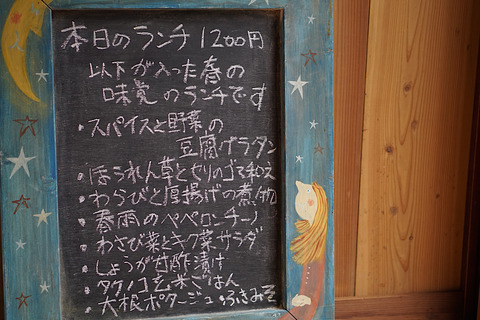 本日のランチ 1200円
以下が入った春の
味覚のランチです
・スパイスと野菜の
豆腐グラタン
・ほうれん草とちりのゴマ和え
・わらびと厚揚げの煮物
・春雨のペペロンチーノ
・わさび菜とキク菜サラダ
・しょうが甘酢漬け
・タケノコ玄米ごはん
・大根ポタージュ ・ふきみそ